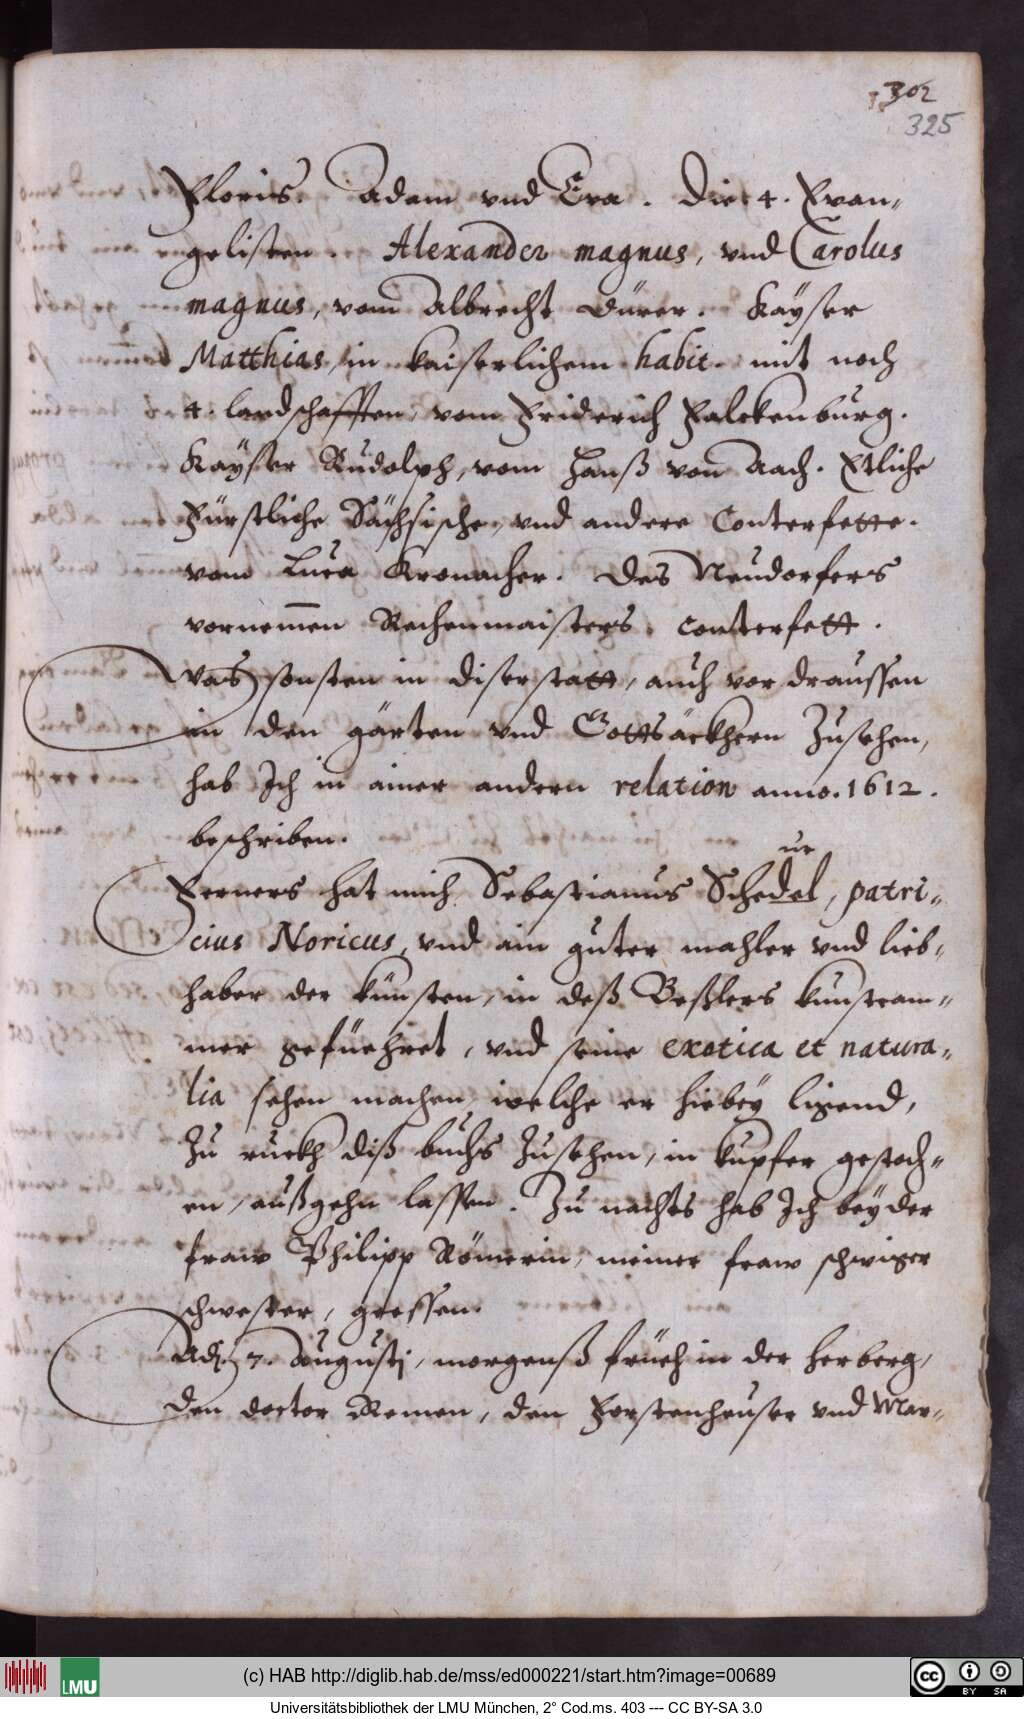 302
325
Floris. Adam vnd Eva. Die 4. Evan„
gelisten. Alexander magnus, vnd Carolus
magnus, vom Albrecht Dürer. Kaÿser
Matthias, in kaiserlichem habit. mit noch
4. landschafften, vom Friderich Falckenburg.
Kaÿser Rudolph, vom Hanß von Aach. Etliche
Fürstliche Sächsische, vnd andere Conterfette.
vom Luca Kronacher. Des Neudorfers
vornemen Rechenmaisters. conterfett.
Was sonsten in diser statt, auch vor draussen
in den gärten vnd Gottsäckhern Zusehen,
hab Ich in ainer andern relation anno. 1612.
beschriben.
ur
Ferners hat mich Sebastianus Schedel, patri„
cius Noricus, vnd ain guter mahler vnd lieb„
haber der künsten, in deß Beßlers kunstcam„
mer gefüehret, vnd seine exotica et natura„
lia sehen machen, welche er hiebeÿ ligend,
Zu ruckh diß buchs Zusehen, in kupfer gestoch„
en, außgehn lassen. Zu nachts hab Ich beÿ der
fraw Philipp Römerin, meiner fraw schwiger
schwester, gessen.
Adj. 7. Augustj, morgenß früeh in der herberg,
den doctor Remen, den Forstenheuser vnd Mar„
(c) HAB http://diglib.hab.de/mss/ed000221/start.htm?image=00689
LMU
cc BY SA
Universitätsbibliothek der LMU München, 2° Cod.ms. 403 --- CC BY-SA 3.0